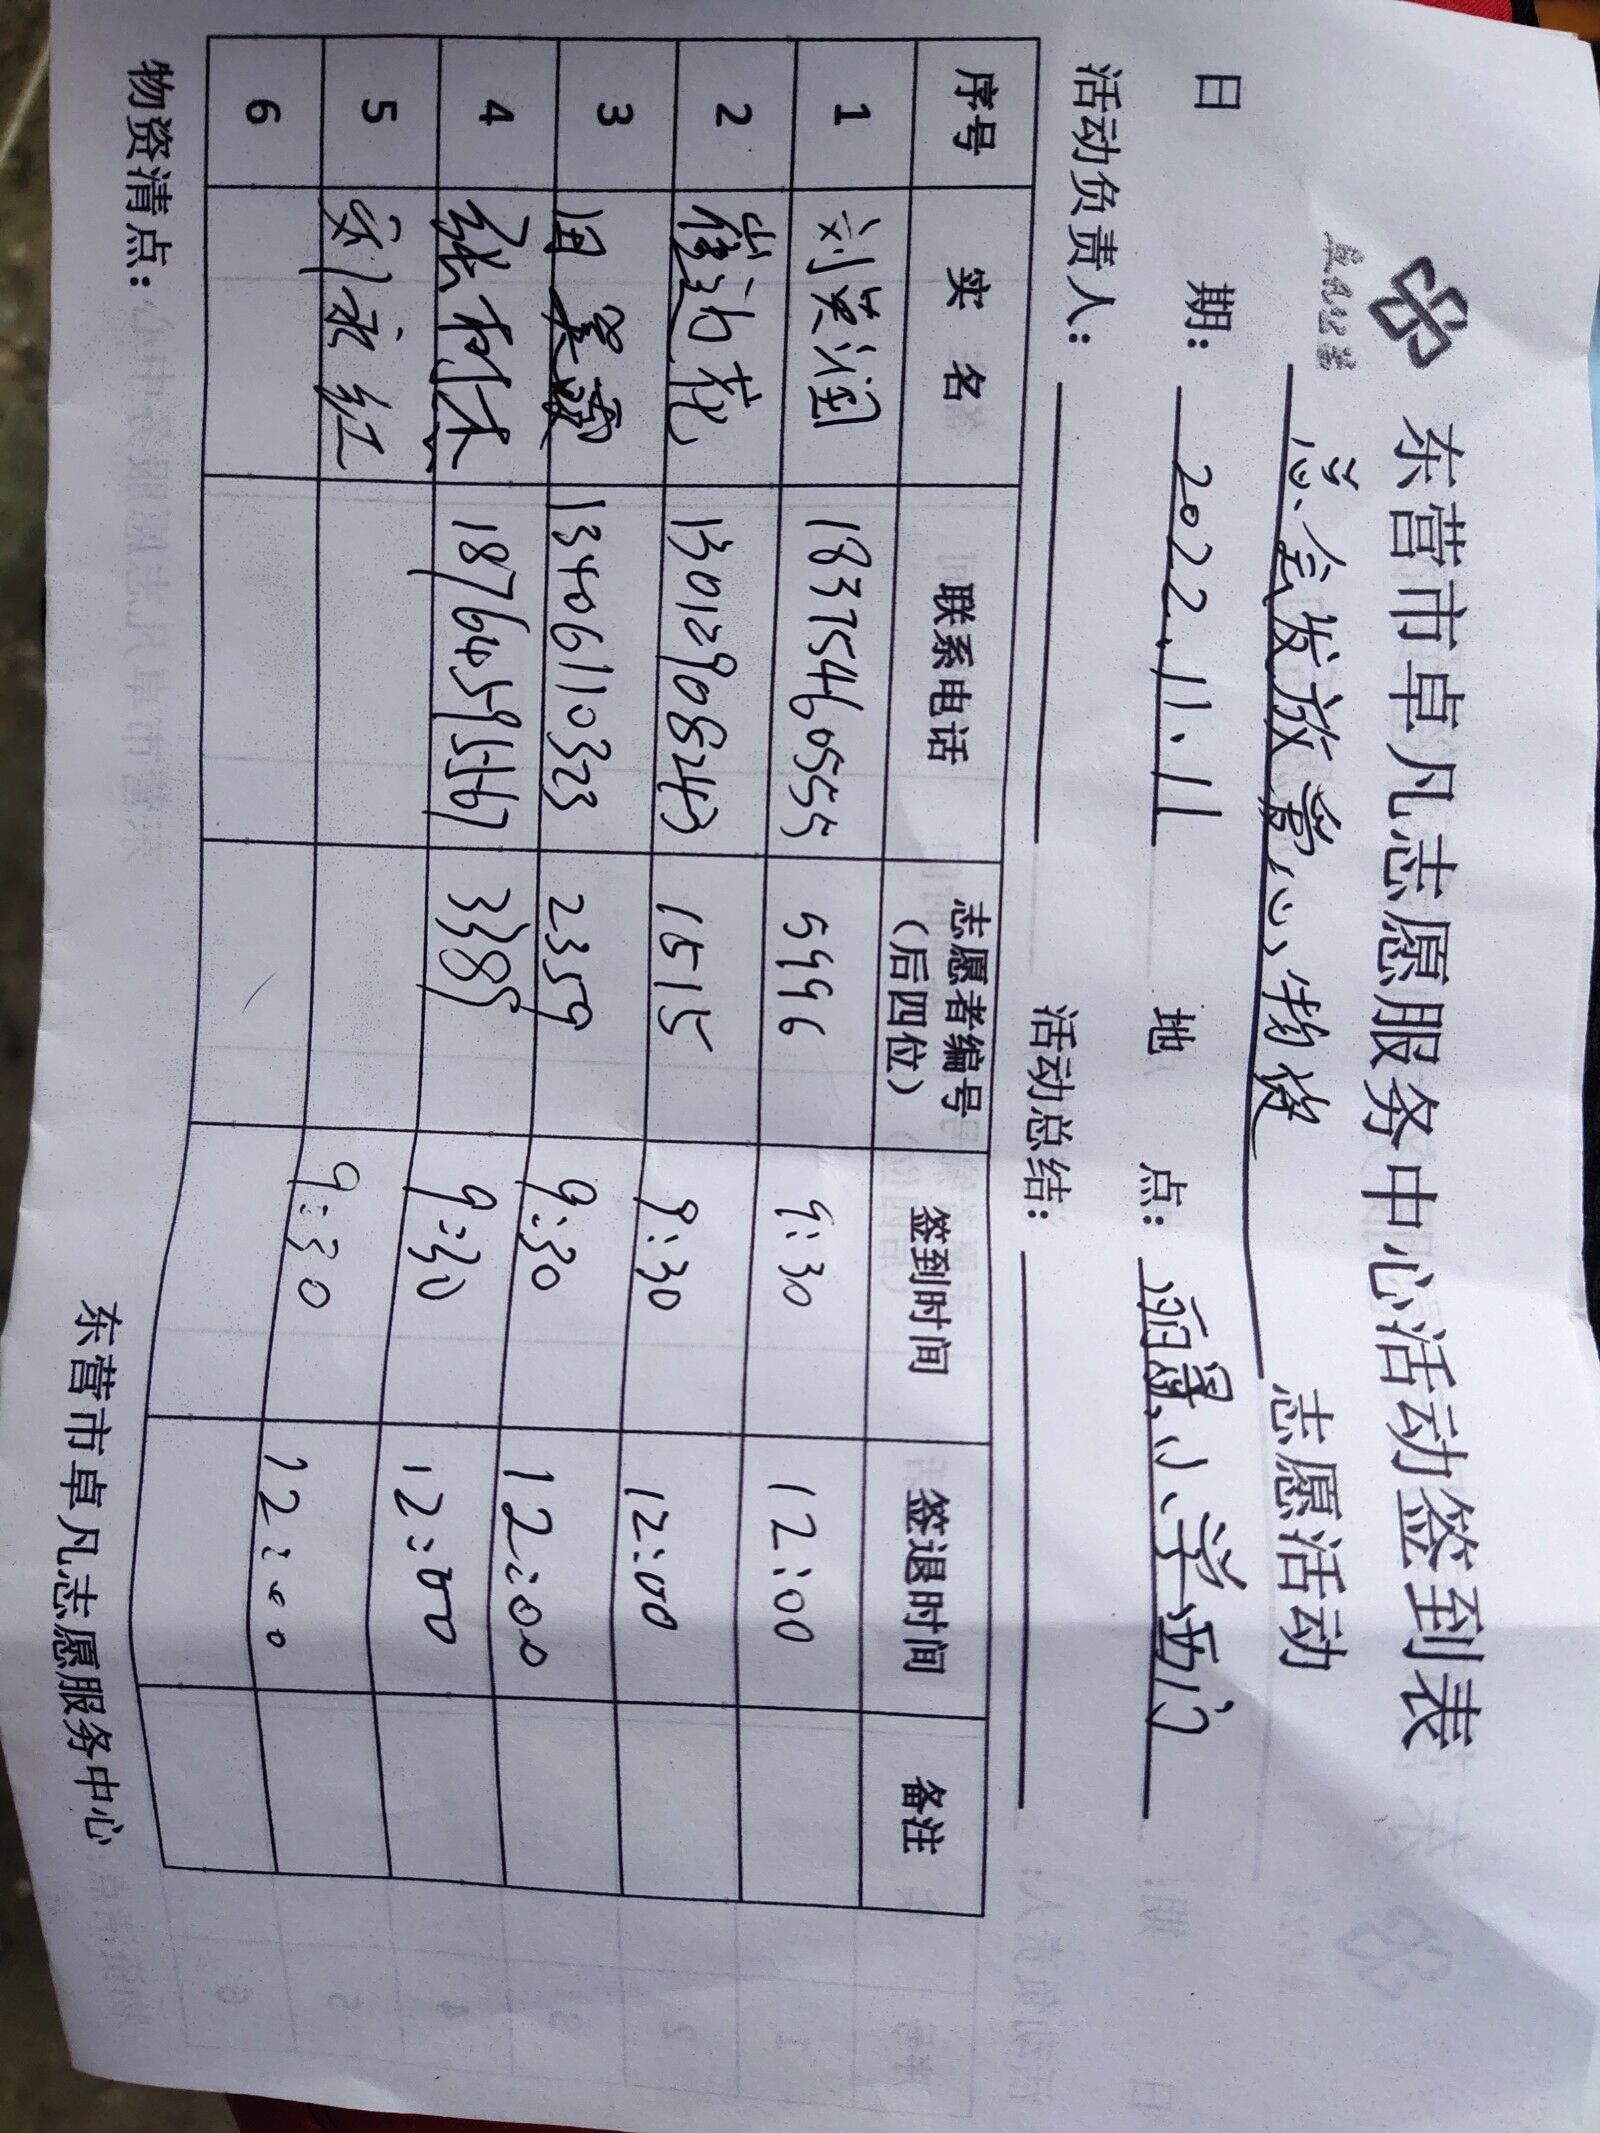 卓凡公益
东营市卓凡志愿服务中心活动签到表
总会发放童心物资 志愿活动
日 期: 2022.11.11 地 点: 丽景小学西门
活动负责人: 活动总结:
序号 实 名 联系电话 志愿者编号(后四位) 签到时间 签退时间 备注
1 刘英润 18375460555 5996 9:30 12:00
2 13012908243 1515 9:30 12:00
3 13406110323 2359 9:30 12:00
4 张利杰 18764059567 3389 9:30 12:00
5 永红 9:30 12:00
6
物资清点:
东营市卓凡志愿服务中心